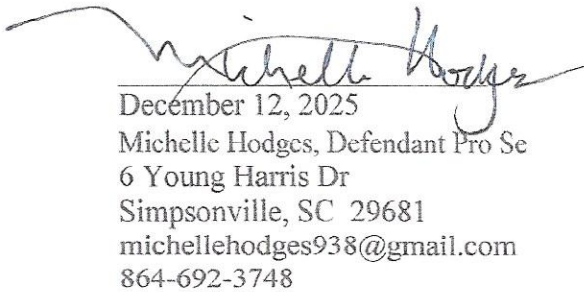 Michelle Hodges
December 12, 2025
Michelle Hodges, Defendant Pro Se
6 Young Harris Dr
Simpsonville, SC 29681
michellehodges938@gmail.com
864-692-3748